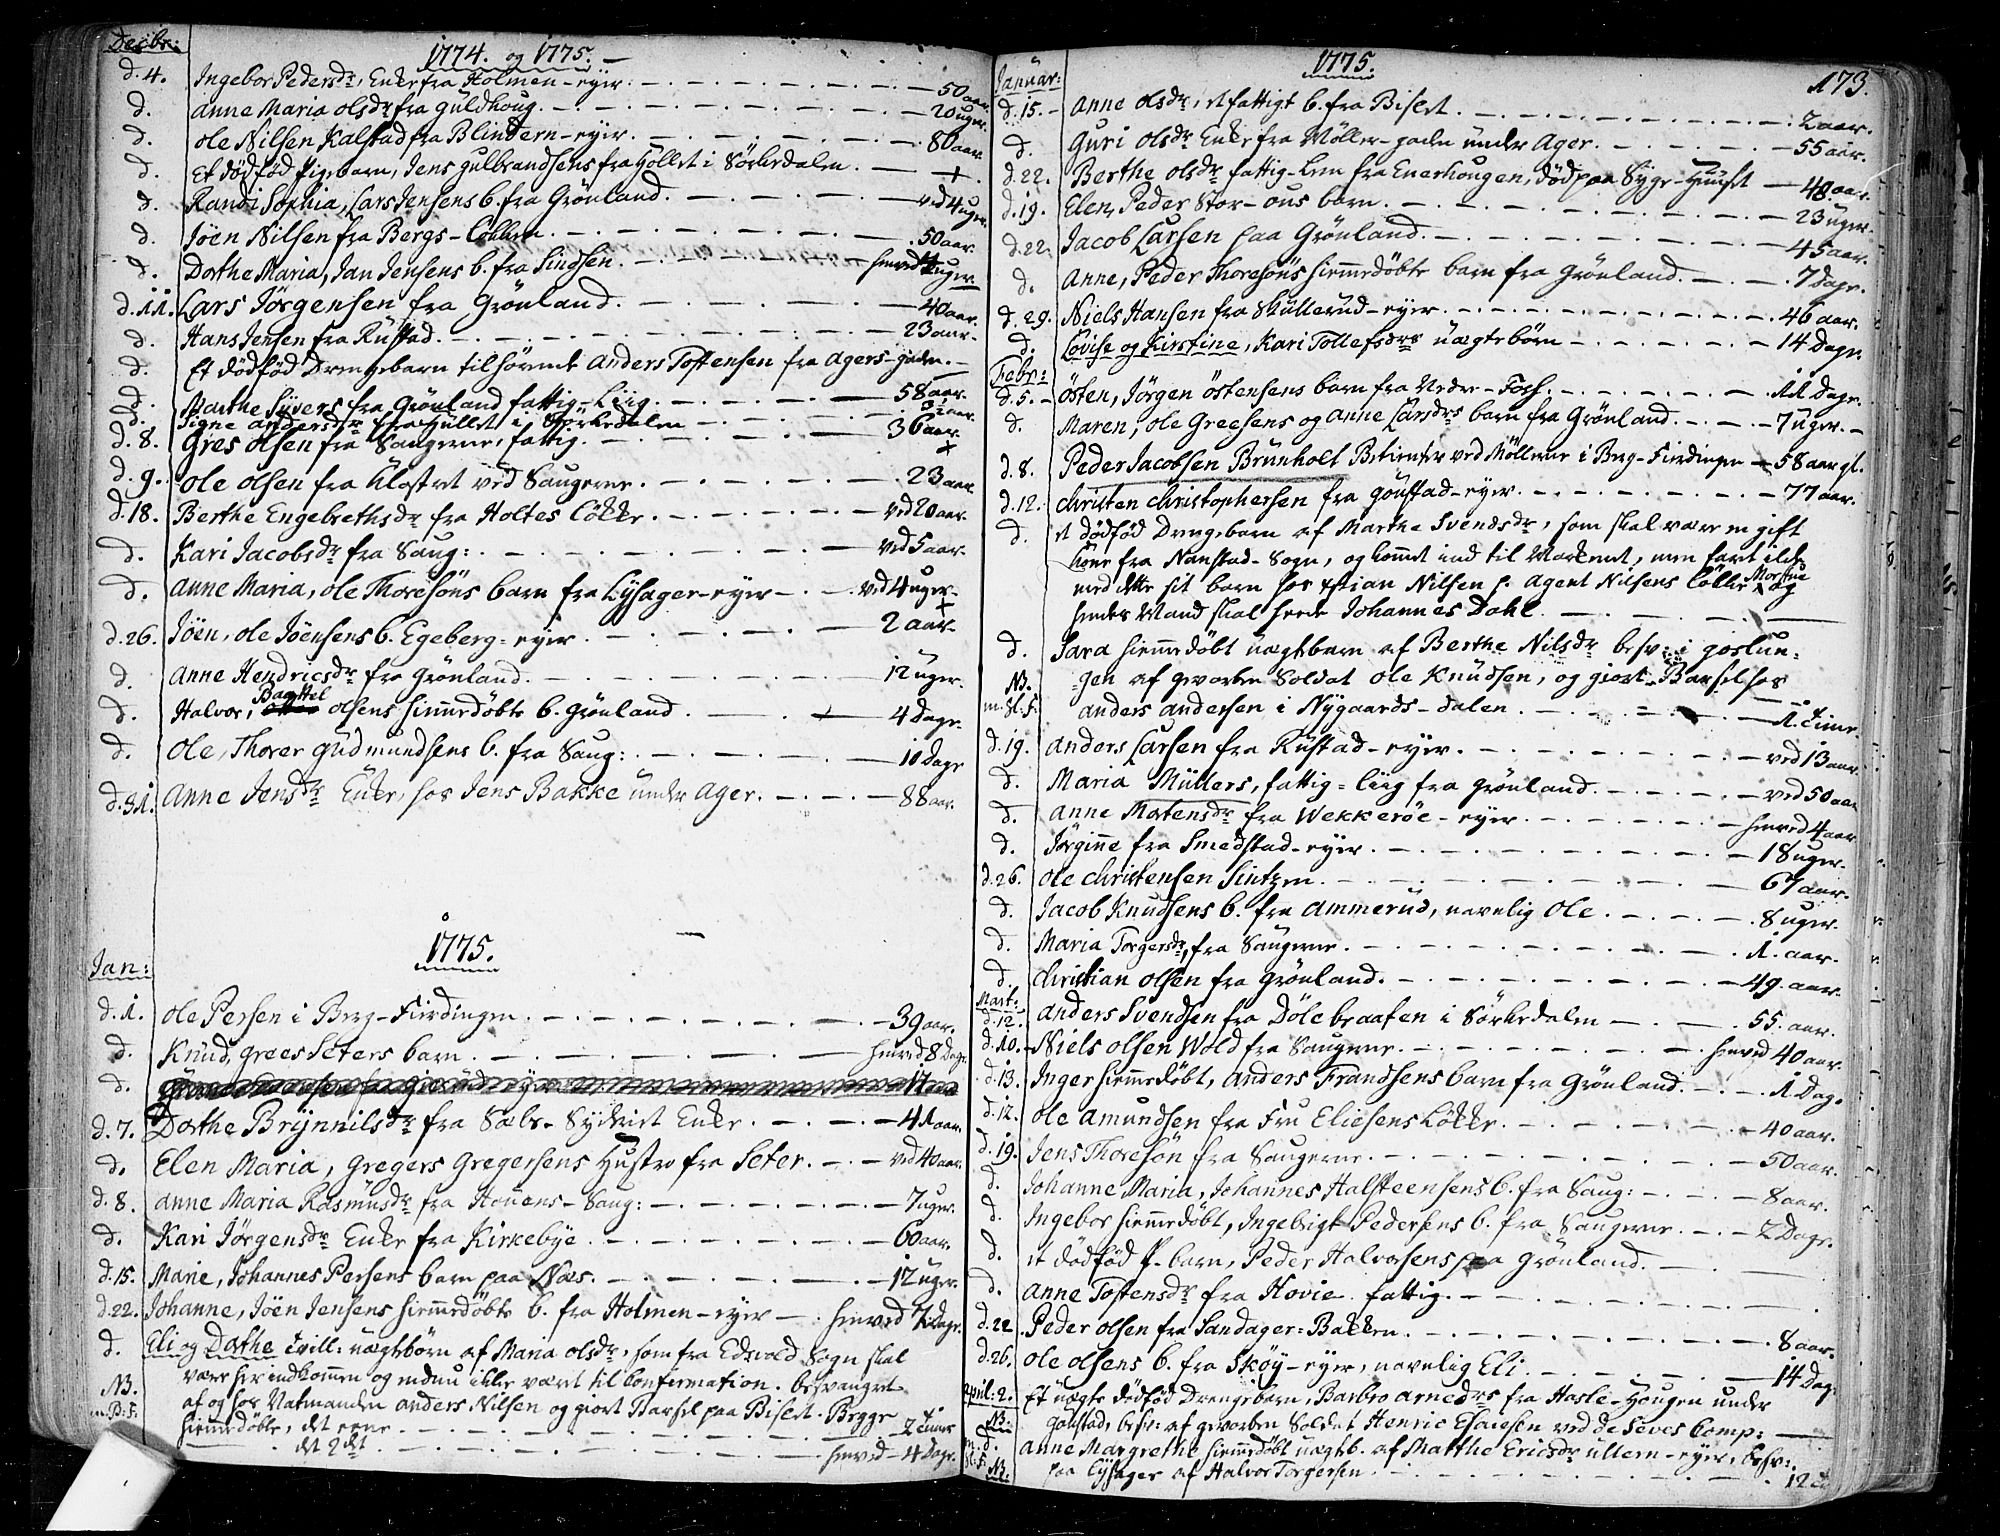 Decbr: 1774. og 1775.
d. 4. Ingebor Pedersdr, Enke fra Holmen-eyer 50 aar.
d. Anne Maria olsdr fra Guldhoug. 20 uger.
d. Ole Nilsen Kalstad fra Blindern-eyer. 80 aar.
d. Et dödfød Pigebarn, Jens Gulbrandsens fra Hollet i Sörkedalen +.
d. Randi Sophia, Lars Jensens b. fra Grönland. ved 4 uger
d. Jöen Nilsen fra Bergs-Lökken. 50 aar.
d. Dorthe Maria, Jan Jensens b. fra Sinsen. henved uger
d. 11. Lars Jörgensen fra Grönland. 40 aar.
d. Hans Jensen fra Rustad. 23 aar.
d. Et dödfød Drengebarn tilhørende Anders Tostensen fra Agers-gaden.
d. Marthe Syvers fra Grönland fattig-Liig. 58 aar.
d. Signe Andersdr fra Hullet i Sörkedalen aar.
d. 8. Gres olsen fra Saugerne, fattig. 36 aar.
d. 9. Ole olsen fra Klostret ved Saugerne. 23 aar.
d. 18. Berthe Engebrethsdr fra Holtes Lökke. ved 20 aar.
d. Kari Jacobsdr fra Saug: ved 5 aar.
d. Anne Maria, ole Thoresöns barn fra Lysager-eyer ved 4 uger
d. 26. Jöen, ole Jöensens b. Egeberg-eyer 2 aar
d. Anne Hendricsdr fra Grönland. 12 uger.
d. Halvor, olsens hiemmedøbte b. Grönland 4 Dage.
d. Ole, Thorer Gudmundsens b. fra Saug: 10 Dage
d. 31. Anne Jensdr Enke, hos Jens Bakke under Ager. 88 aar.
1775.
Jan:
d. 1. Ole Persen i Berg-Fierdingen 39 aar.
d. Knud, Grees Seters barn henved 8 Dage
d.
d. 7. Dorthe Brynnilsdr fra Enke 41 aar.
d. Elen Maria, Gregers Gregersens Hustro fra Seter. ved 40 aar
d. 8. Anne Maria Rasmusdr fra Saug: 7 uger.
d. Kari Jörgensdr Enke fra Kirkebye 60 aar.
d. 15. Marie, Johannes Persens barn paa Næs. 12 uger.
d. 22. Johanne, Jöen Jensens hiemmedøbte b. fra Holmen-eyer henved 7 Dage
d. Eli og Dorthe tvill: uægtebørn af Maria olsdr, som fra Edsvold Sogn skal
være her indkommen og endnu ikke været til Confirmation. besvangret
NB. af og hos Natmanden Anders Nilsen og giort Barsel paa Bisert. Begge
m. B: F. hiemmedøbte, det eene 2 Timer
det 2det henved 4 Dage.
1775. 173.
Januar:
d. 15. Anne olsdr, et fattigt b. fra Bisert 2 aar.
d. Guri olsdr Enke fra Möller-gaden under Ager. 55 aar.
d. 22. Berthe olsdr fattig-Lem fra Enerhougen, død paa Syge-Huuset 48 aar.
d. 19. Elen, Peder Stor-ous barn. 23 uger
d. 22. Jacob Larsen paa Grönland. 45 aar.
d. Anne, Peder Thoresöns hiemmedøbte barn fra Grönland. 7 Dage.
d. 29. Niels Hansen fra Skullerud-eyer. 46 aar.
d. Lovise og Kirstine, Kari Tollefsdrs uægtebørn 14 Dage.
Febr:
d. 5. Östen, Jörgen Östensens barn fra Nedre-Foss. 11 Dage.
d. Maren, ole Greesens og Anne Larsdrs barn fra Grönland. 7 uger.
d. 8. Peder Jacobsen Brünholt Betienter ved Möllerne i Berg-Fierdingen 58 aar gl.
d. 12. Christen Christophersen fra Goustad-eyer. 77 aar.
d. et dødfød Drengebarn af Marthe Svendsdr, som skal være en gift
kone fra Nanstad-Sogn, og kommet ind til Markenet, men faret ilde
med dette sit barn hos Nilsen p. Agent Nilsens Lökke og
hendes Mand skal heede Johannes Dahl.
d. Sara hiemmedøbt uægtebarn af Berthe Nilsdr besv: i goslun-
NB. gen af gevorben Soldat Ole Knudsen, og giort Barsel hos
Anders Andersen i Nygaards-dalen. 1. Time.
d. 19. Anders Larsen fra Rustad-eyer. ved 13 aar.
d. Maria Müllers, fattig-liig fra Grönland. ved 50 aar
d. Anne Mortensdr fra Wekkeröe-eyer. henved 4 aar
d. Jörginne fra Smedstad-eyer. 18 uger.
d. 26. Ole Christensen Sintzen 67 aar.
d. Jacob Knudsens b. fra Ammerud, navnlig Ole. 8 uger.
d. Maria Torgersdr, fra Saugerne. 1. aar.
d. Christian olsen fra Grönland. 49. aar.
Mart:
d. 12. Anders Svendsen fra i Sörkedalen 55. aar.
d. 10. Niels olsen Wold fra Saugerne. henved 40 aar.
d. 13. Inger hiemmedøbt, Anders Frandsens barn fra Grönland. 1 Dag.
d. 12. Ole Amundsen fra Fru Eliesens Lökke. 40 aar.
d. 19. Jens Thoresön fra Saugerne. 50 aar.
d. Johanne Maria, Johannes Halsteensens b. fra Saug: 8 aar.
d. Ingebor hiemmedøbt, Ingebrigt Pedersens b. fra Saugerne. 2 Dage.
d. et dødfød P-barn, Peder Halvorsens paa Grönland.
d. Anne Tostensdr fra Hovie. fattig.
d. 22. Peder olsen fra Sandager-Bakken. 8 aar.
d. 26. Ole olsens b. fra Sköy-eyer, navnlig Eli 14 Dage
April: 2. Et uægte dødfød Drengebarn, Barbro Arnedrs fra Hasle-Hougen under
NB. Goustad, besv: af gevorben Soldat Henric Esaiesen ved de Seves Comp:
d. Anne Margrethe hiemmedøbt uægteb. af Marthe Ericsdr ullern-eyer, besv:
NB. paa Lysager af Halvor Torgersen. 12